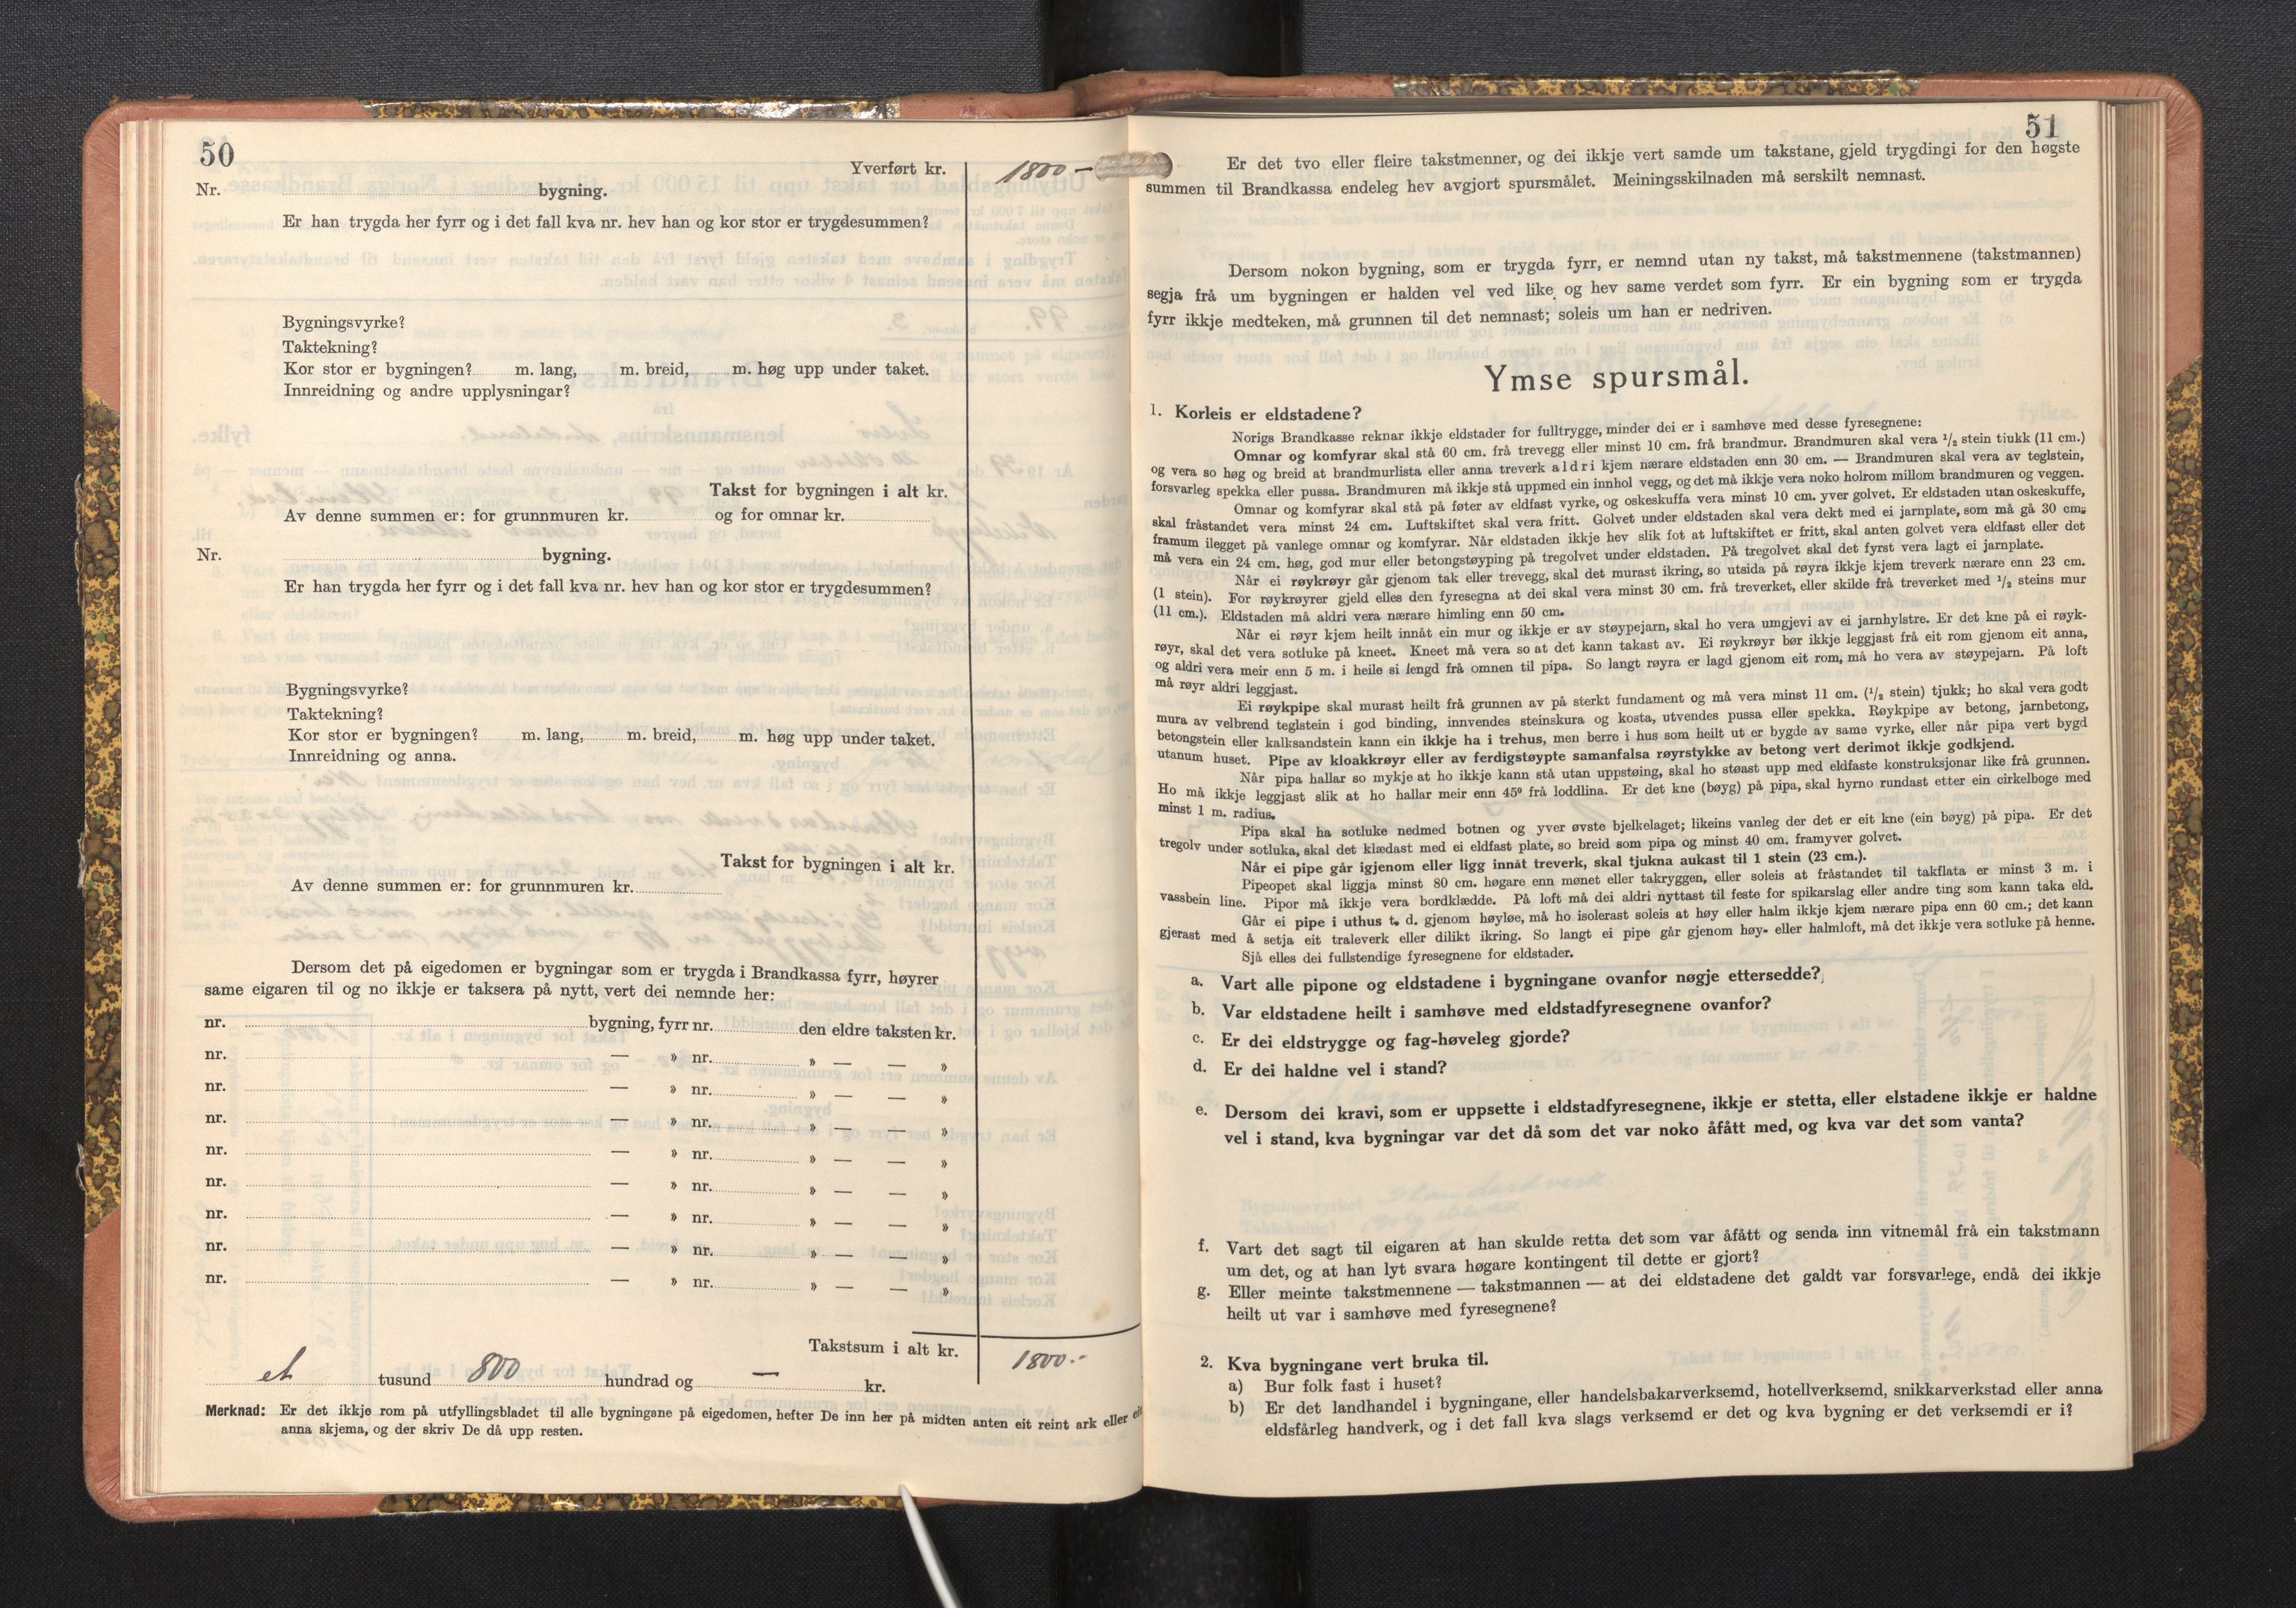 50
Yverført kr. 1800-
Nr. bygning.
Er han trygda her fyrr og i det fall kva nr. hev han og kor stor er trygdesummen?
Bygningsvyrke?
Taktekning?
Kor stor er bygningen? m. lang, m. breid, m. høg upp under taket.
Innreidning og andre upplysningar?
Takst for bygningen i alt kr.
Av denne summen er: for grunnmuren kr. og for omnar kr.
Nr. bygning.
Er han trygda her fyrr og i det fall kva nr. hev han og kor stor er trygdesummen?
Bygningsvyrke?
Taktekning?
Kor stor er bygningen? m. lang, m. breid, m. høg upp under taket.
Innreidning og anna.
Takst for bygningen i alt kr.
Av denne summen er: for grunnmuren kr.
Dersom det på eigedomen er bygningar som er trygda i Brandkassa fyrr, høyrer
same eigaren til og no ikkje er taksera på nytt, vert dei nemnde her:
nr. bygning, fyrr nr. den eldre taksten kr.
nr. — » nr. » — — »
nr. — » nr. » — — »
nr. — » nr. » — — »
nr. — » nr. » — — »
nr. — » nr. » — — »
nr. — » nr. » — — »
nr. — » nr. » — — »
nr. — » nr. » — — »
Takstsum i alt kr. 1800.-
et tusund 800 hundrad og — kr.
Merknad: Er det ikkje rom på utfyllingsbladet til alle bygningane på eigedomen, hefter De inn her på midten anten eit reint ark eller eit
anna skjema, og der skriv De då upp resten.
51
Er det tvo eller fleire takstmenner, og dei ikkje vert samde um takstane, gjeld trygdingi for den høgste
summen til Brandkassa endeleg hev avgjort spursmålet. Meiningsskilnaden må serskilt nemnast.
Dersom nokon bygning, som er trygda fyrr, er nemnd utan ny takst, må takstmennene (takstmannen)
segja frå um bygningen er halden vel ved like, og hev same verdet som fyrr. Er ein bygning som er trygda
fyrr ikkje medteken, må grunnen til det nemnast; soleis um han er nedriven.
Ymse spursmål.
1. Korleis er eldstadene?
Norigs Brandkasse reknar ikkje eldstader for fulltrygge, minder dei er i samhøve med desse fyresegnene:
Omnar og komfyrar skal stå 60 cm. frå trevegg eller minst 10 cm. frå brandmur. Brandmuren skal vera 1/2 stein tjukk (11 cm.)
og vera so høg og breid at brandmurlista eller anna treverk aldri kjem nærare eldstaden enn 30 cm. — Brandmuren skal vera av teglstein,
forsvarleg spekka eller pussa. Brandmuren må ikkje stå uppmed ein innhol vegg, og det må ikkje vera noko holrom millom brandmuren og veggen.
Omnar og komfyrar skal stå på føter av eldfast vyrke, og oskeskuffa vera minst 10 cm. yver golvet. Er eldstaden utan oskeskuffe,
skal fråstandet vera minst 24 cm. Luftskiftet skal vera fritt. Golvet under eldstaden skal vera dekt med ei jarnplate, som må gå 30 cm.
framum ilegget på vanlege omnar og komfyrar. Når eldstaden ikkje hev slik fot at luftskiftet er fritt, skal anten golvet vera eldfast eller det
må vera ein 24 cm. høg, god mur eller betongstøyping på tregolvet under eldstaden. På tregolvet skal det fyrst vera lagt ei jarnplate.
Når ei røykrøyr går gjenom tak eller trevegg, skal det murast ikring, so utsida på røyra ikkje kjem treverk nærare enn 23 cm.
(1 stein). For røykrøyrer gjeld elles den fyresegna at dei skal vera minst 30 cm. frå treverket, eller skilde frå treverket med 1/2 steins mur
(11 cm.). Eldstaden må aldri vera nærare himling enn 50 cm.
Når ei røyr kjem heilt innåt ein mur og ikkje er av støypejarn, skal ho vera umgjevi av ei jarnhylstre. Er det kne på ei røyk-
røyr, skal det vera sotluke på kneet. Kneet må vera so at det kann takast av. Ei røykrøyr bør ikkje leggjast frå eit rom gjenom eit anna,
og aldri vera meir enn 5 m. i heile si lengd frå omnen til pipa. So langt røyra er lagd gjenom eit rom, må ho vera av støypejarn. På loft
må røyr aldri leggjast.
Ei røykpipe skal murast heilt frå grunnen av på sterkt fundament og må vera minst 11 cm. (1/2 stein) tjukk; ho skal vera godt
mura av velbrend teglstein i god binding, innvendes steinskura og kosta, utvendes pussa eller spekka. Røykpipe av betong, jarnbetong,
betongstein eller kalksandstein kann ein ikkje ha i trehus, men berre i hus som heilt ut er bygde av same vyrke, eller når pipa vert bygd
utanum huset. Pipe av kloakkrøyr eller av ferdigstøypte samanfalsa røyrstykke av betong vert derimot ikkje godkjend.
Når pipa hallar so mykje at ho ikkje kann stå utan uppstøing, skal ho støast upp med eldfaste konstruksjonar like frå grunnen.
Ho må ikkje leggjast slik at ho hallar meir enn 45° frå loddlina. Er det kne (bøyg) på pipa, skal hyrno rundast etter ein cirkelboge med
minst 1 m. radius.
Pipa skal ha sotluke nedmed botnen og yver øvste bjelkelaget; likeins vanleg der det er eit kne (ein bøyg) på pipa. Er det
tregolv under sotluka, skal det klædast med ei eldfast plate, so breid som pipa og minst 40 cm. framyver golvet.
Når ei pipe går igjenom eller ligg innåt treverk, skal tjukna aukast til 1 stein (23 cm.).
Pipeopet skal liggja minst 80 cm. høgare enn mønet eller takryggen, eller soleis at fråstandet til takflata er minst 3 m. i
vassbein line. Pipor må ikkje vera bordklædde. På loft må dei aldri nyttast til feste for spikarslag eller andre ting som kann taka eld.
Går ei pipe i uthus t. d. gjenom høyløe, må ho isolerast soleis at høy eller halm ikkje kjem nærare pipa enn 60 cm.; det kann
gjerast med å setja eit traleverk eller dilikt ikring. So langt ei pipe går gjenom høy- eller halmloft, må det ikkje vera sotluke på henne.
Sjå elles dei fullstendige fyresegnene for eldstader.
a. Vart alle pipone og eldstadene i bygningane ovanfor nøgje ettersedde?
b. Var eldstadene heilt i samhøve med eldstadfyresegnene ovanfor?
c. Er dei eldstrygge og fag-høveleg gjorde?
d. Er dei haldne vel i stand?
e. Dersom dei kravi, som er uppsette i eldstadfyresegnene, ikkje er stetta, eller elstadene ikkje er haldne
vel i stand, kva bygningar var det då som det var noko åfått med, og kva var det som vanta?
f. Vart det sagt til eigaren at han skulde retta det som var åfått og senda inn vitnemål frå ein takstmann
um det, og at han lyt svara høgare kontingent til dette er gjort?
g. Eller meinte takstmennene — takstmannen — at dei eldstadene det galdt var forsvarlege, endå dei ikkje
heilt ut var i samhøve med fyresegnene?
2. Kva bygningane vert bruka til.
a) Bur folk fast i huset?
b) Er det landhandel i bygningane, eller handelsbakarverksemd, hotellverksemd, snikkarverkstad eller anna
eldsfårleg handverk, og i det fall kva slags verksemd er det og kva bygning er det verksemdi er i?